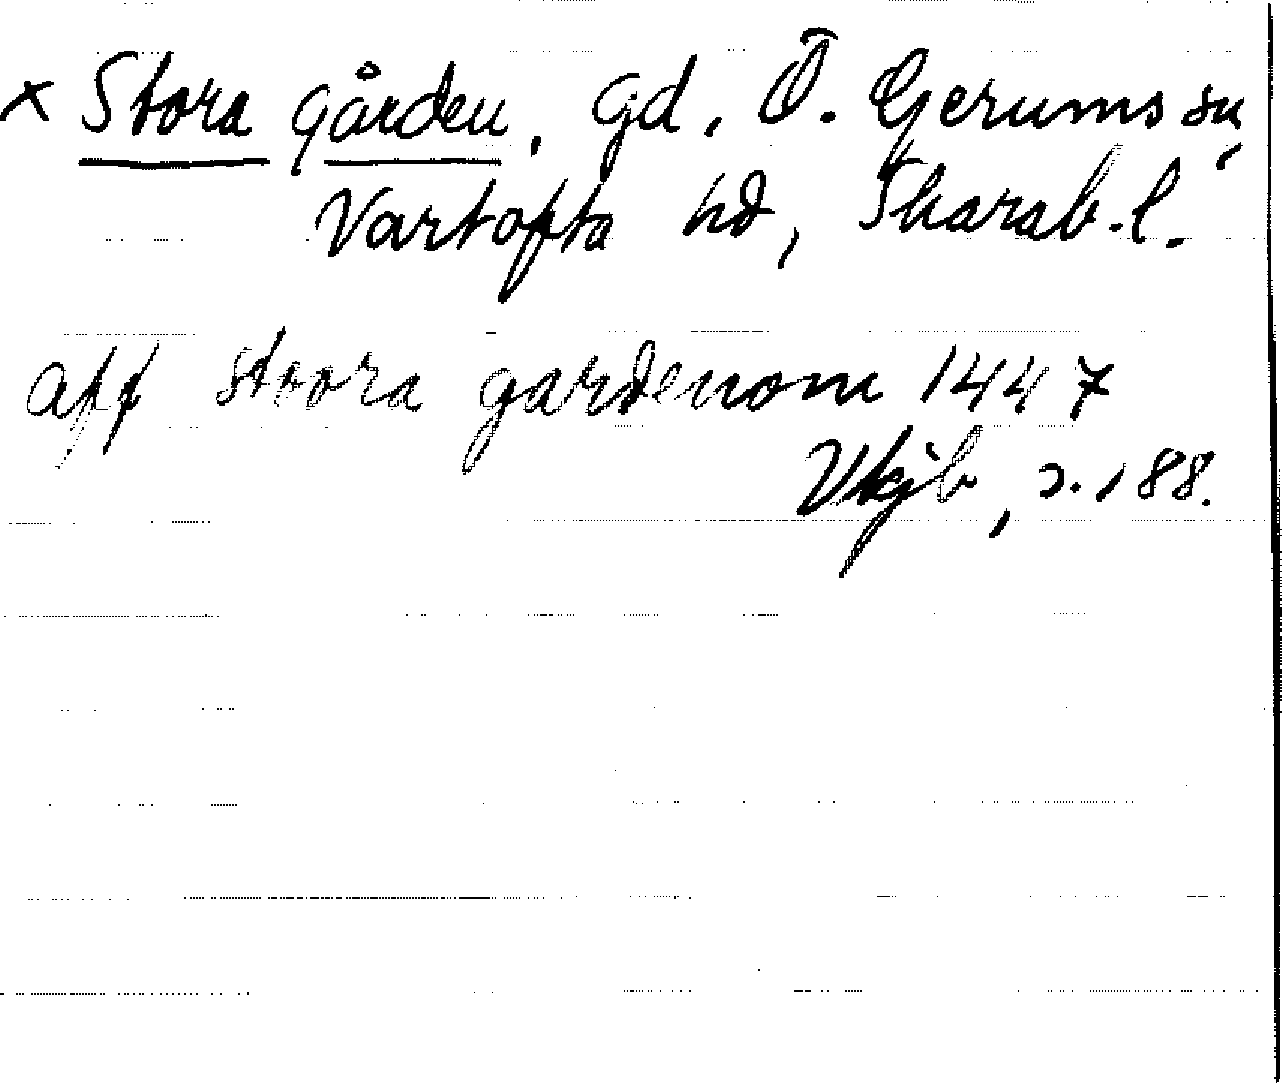 × Stora gården, Gd, Ö. Gerums sn,
Vartofta hd, Skarab. l.
aff stoora gardenom 1447
Vkjb, s. 188.